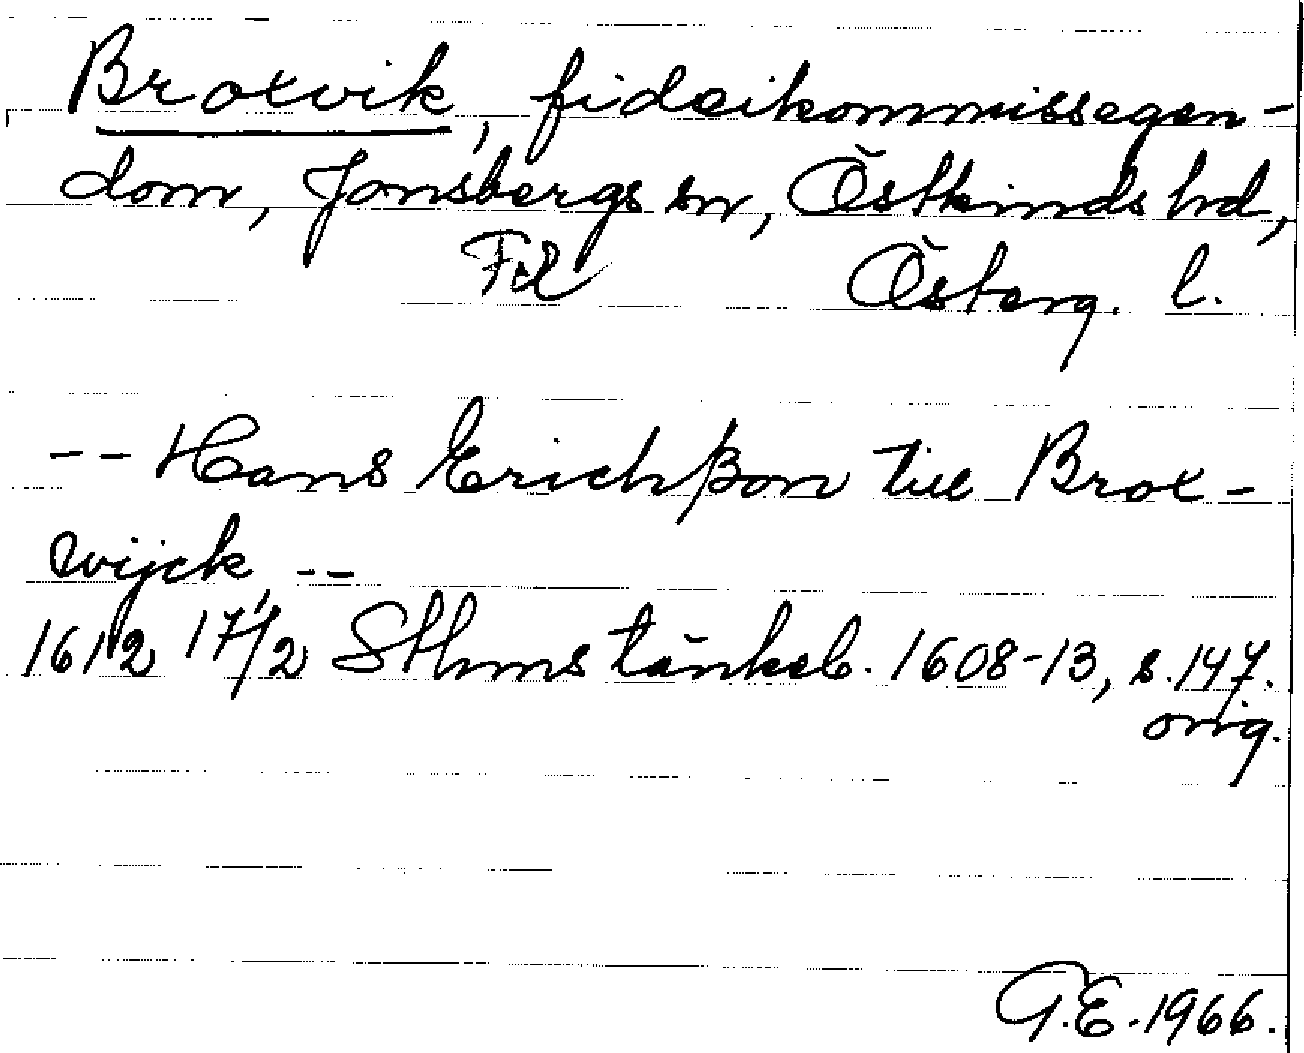 Broxvik, fideikommissegen-
dom, Jonsbergs sn, Östkinds hd,
Fil Österg. l.
-- Hans Erichßon till Brox-
wijck, --
1612 17/2 Sthms tänkeb. 1608-13, s. 147.
orig.
G.E. 1966.